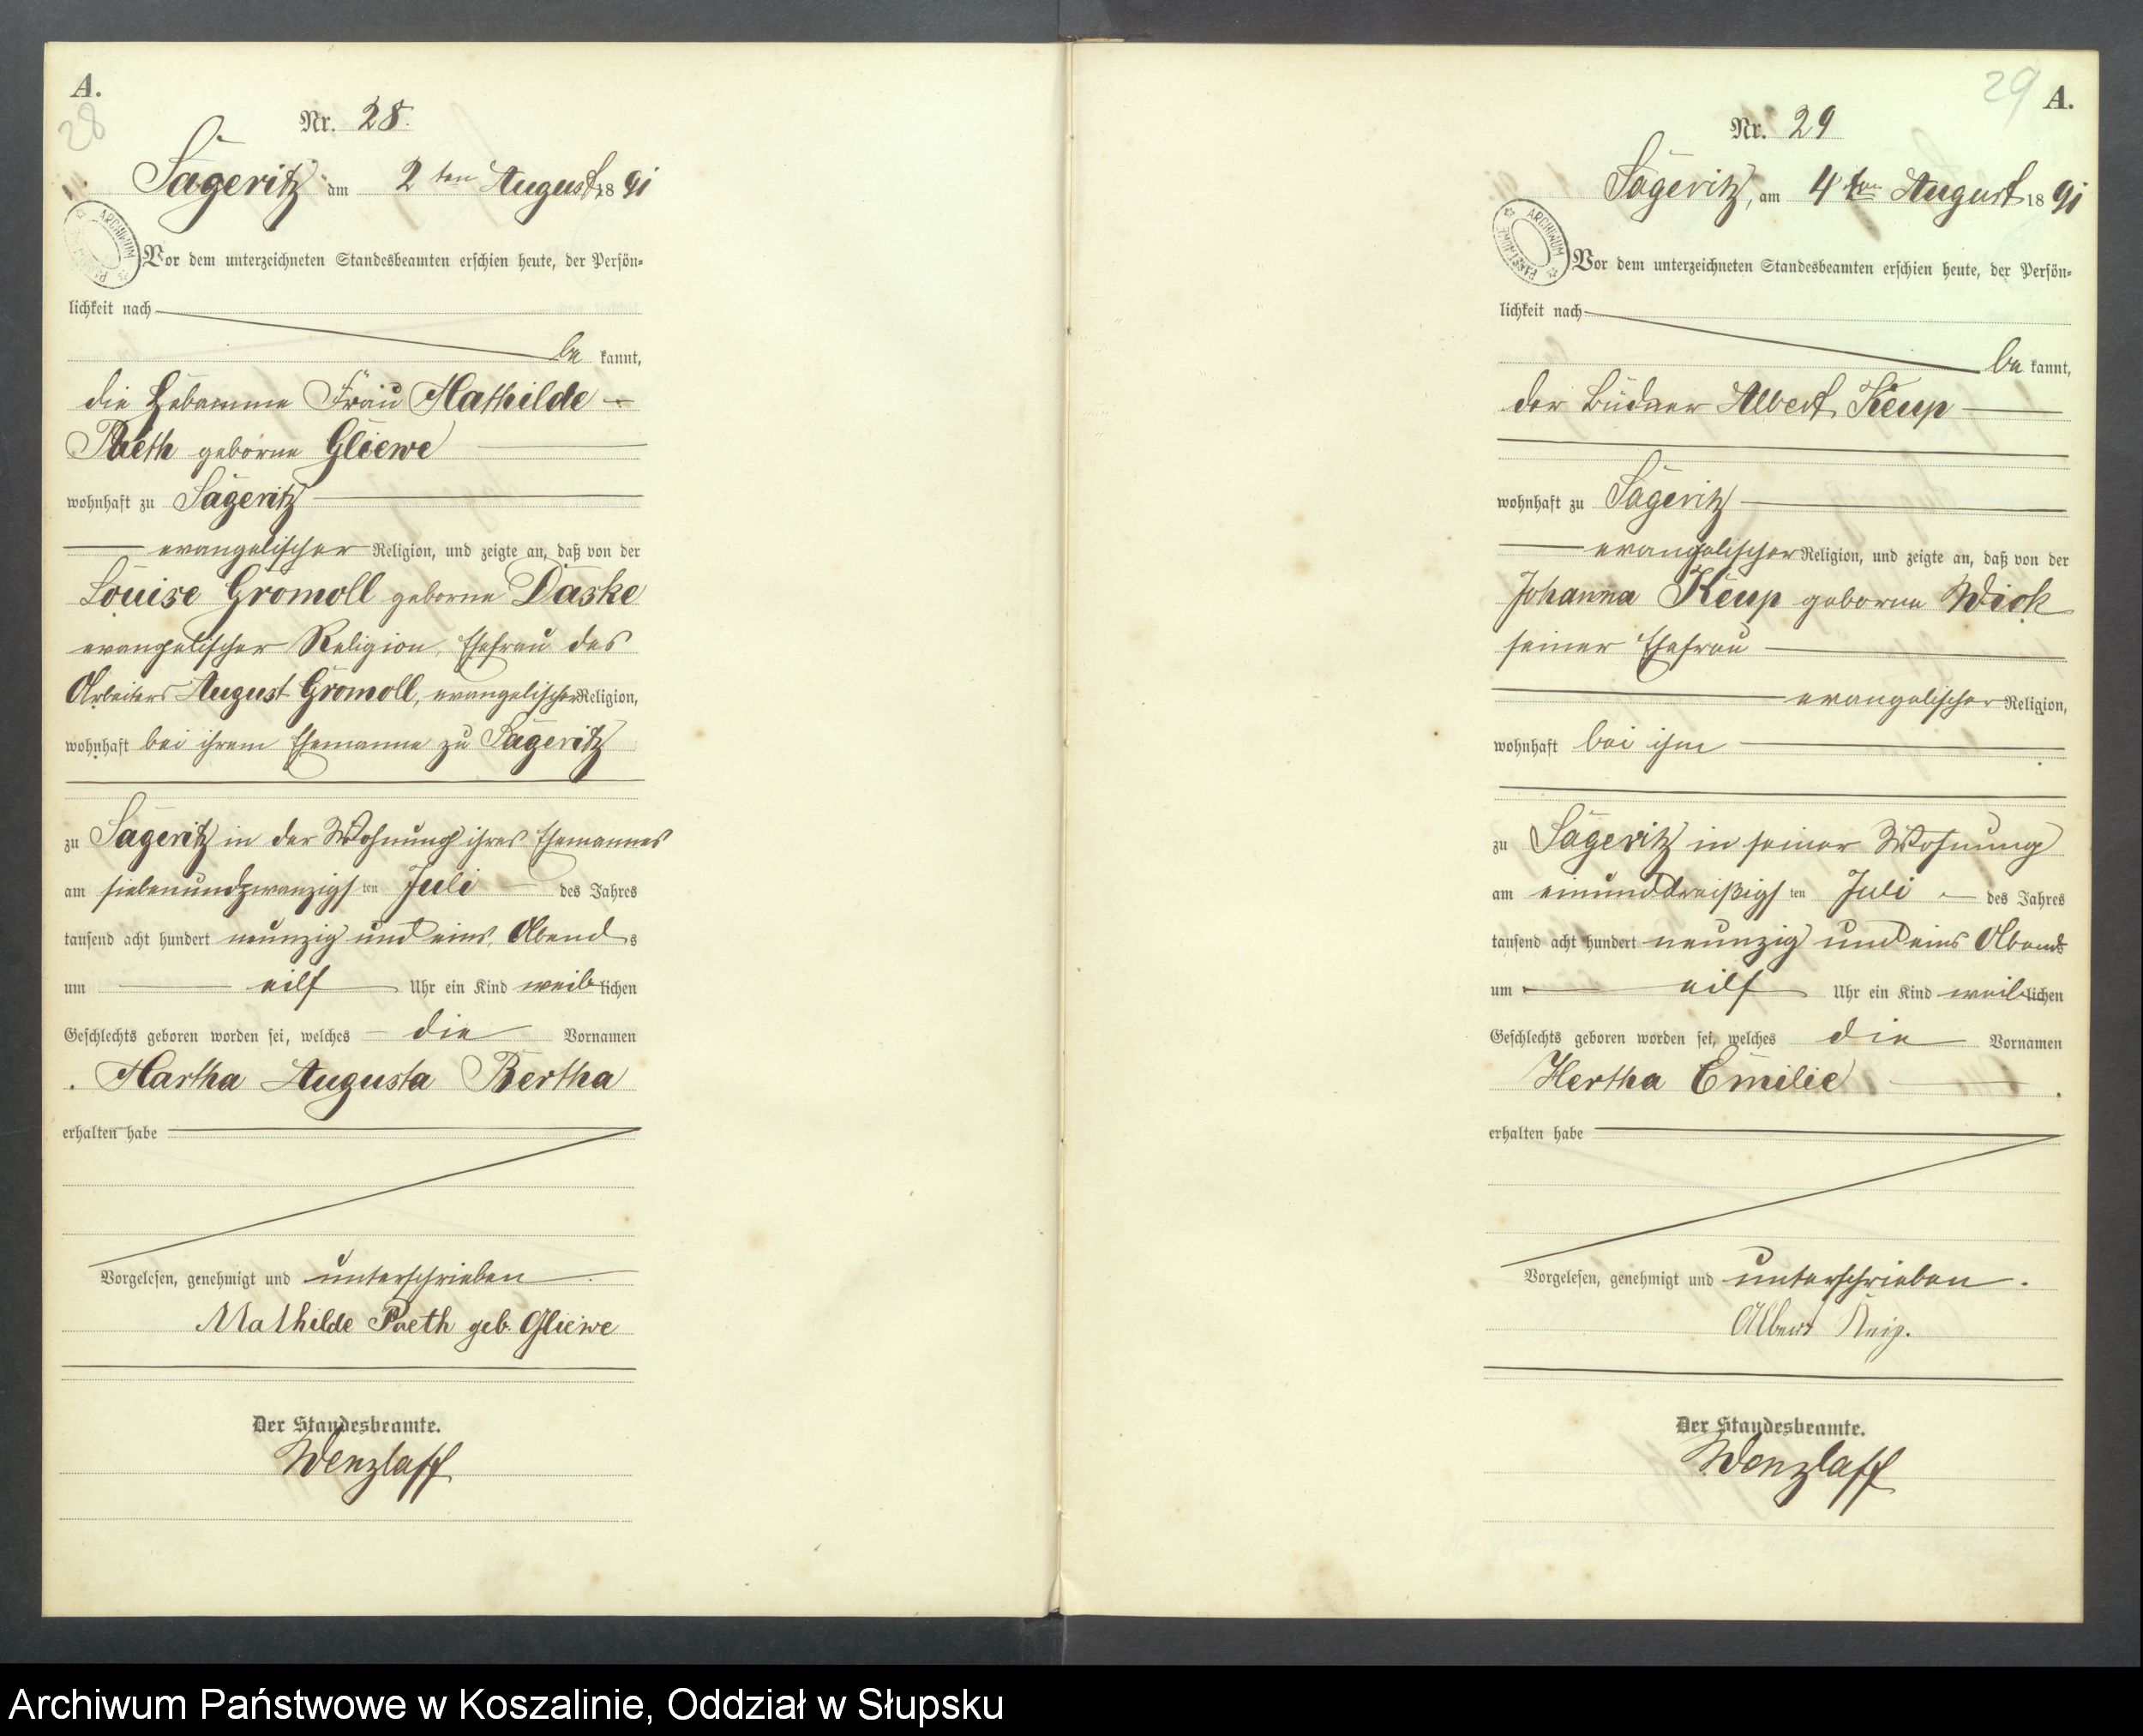 A.
28
Nr. 28.
Sageritz am 2ten August 1891
ARCHIWUM PAŃSTWOWE
Vor dem unterzeichneten Standesbeamten erschien heute, der Persön-
lichkeit nach
be kannt,
die Hebamme Frau Mathilde
Paeth geborne Gliewe
wohnhaft zu Sageritz
evangelischer Religion, und zeigte an, daß von der
Louise Gromoll geborne Daske
evangelischer Religion, Ehefrau des
Arbeiters August Gromoll, evangelischer Religion,
wohnhaft bei ihrem Ehemanne zu Sageritz
zu Sageritz in der Wohnung ihres Ehemannes
am siebenundzwanzigsten Juli des Jahres
tausend acht hundert neunzig und eins, Abends
um eilf Uhr ein Kind weiblichen
Geschlechts geboren worden sei, welches die Vornamen
Martha Augusta Bertha
erhalten habe
Vorgelesen, genehmigt und unterschrieben.
Mathilde Paeth geb. Gliewe
Der Standesbeamte.
Wenzlaff
29
A.
Nr. 29
Sageritz, am 4ten August 1891
ARCHIWUM PAŃSTWOWE
Vor dem unterzeichneten Standesbeamten erschien heute, der Persön-
lichkeit nach
be kannt,
der Büdner Albert Keup
wohnhaft zu Sageritz
evangelischer Religion, und zeigte an, daß von der
Johanna Keup geborne Wick
seiner Ehefrau
evangelischer Religion,
wohnhaft bei ihm
zu Sageritz in seiner Wohnung
am einunddreißigsten Juli des Jahres
tausend acht hundert neunzig und eins Abends
um eilf Uhr ein Kind weiblichen
Geschlechts geboren worden sei, welches die Vornamen
Hertha Emilie
erhalten habe
Vorgelesen, genehmigt und unterschrieben.
Albert
Der Standesbeamte.
Wenzlaff
Archiwum Państwowe w Koszalinie, Oddział w Słupsku